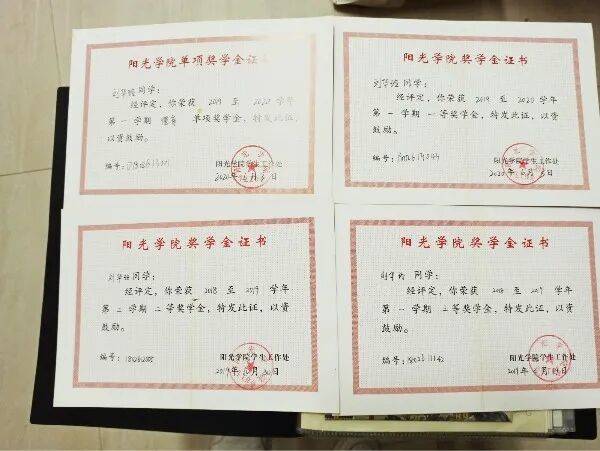 阳光学院单项奖学金证书
同学：
经评定，你荣获 2019 至 2020 学年
第一学期 体育 单项奖学金，特发此证，
以资鼓励。
编号：
阳光学院学生工作处
2020年 月 日
阳光学院奖学金证书
同学：
经评定，你荣获 2019 至 2020 学年
第一学期 一等奖学金，特发此证，以资
鼓励。
编号：
阳光学院学生工作处
2020年 月 日
阳光学院奖学金证书
同学：
经评定，你荣获 2018 至 2019 学年
第二学期 二等奖学金，特发此证，以资
鼓励。
编号：
阳光学院学生工作处
2019年 月 日
阳光学院奖学金证书
同学：
经评定，你荣获 2018 至 2019 学年
第一学期 二等奖学金，特发此证，以资
鼓励。
编号：
阳光学院学生工作处
2019年 月 日